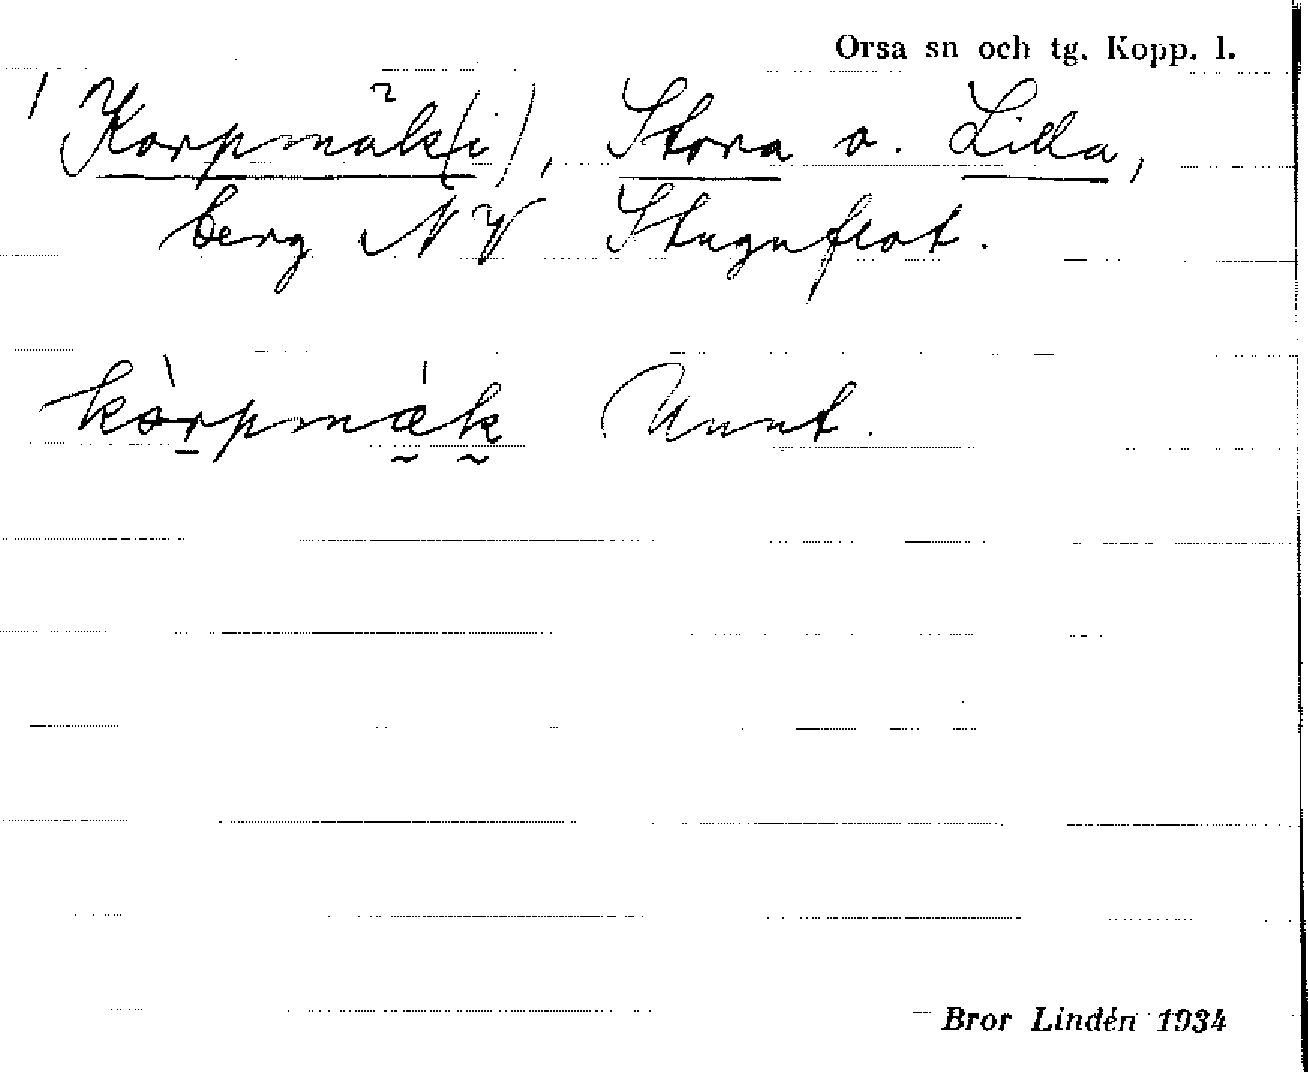 Orsa sn och tg. Kopp. l.
Korpmäk(i), Stora o. Lilla,
berg NV Stuguflot.
kòrpmæ̀k
Bror Lindén 1934